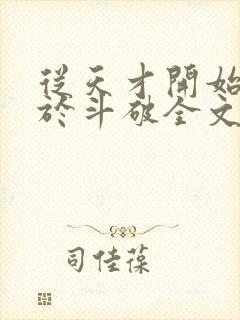 從天才開始
於斗破全文
司佳葆